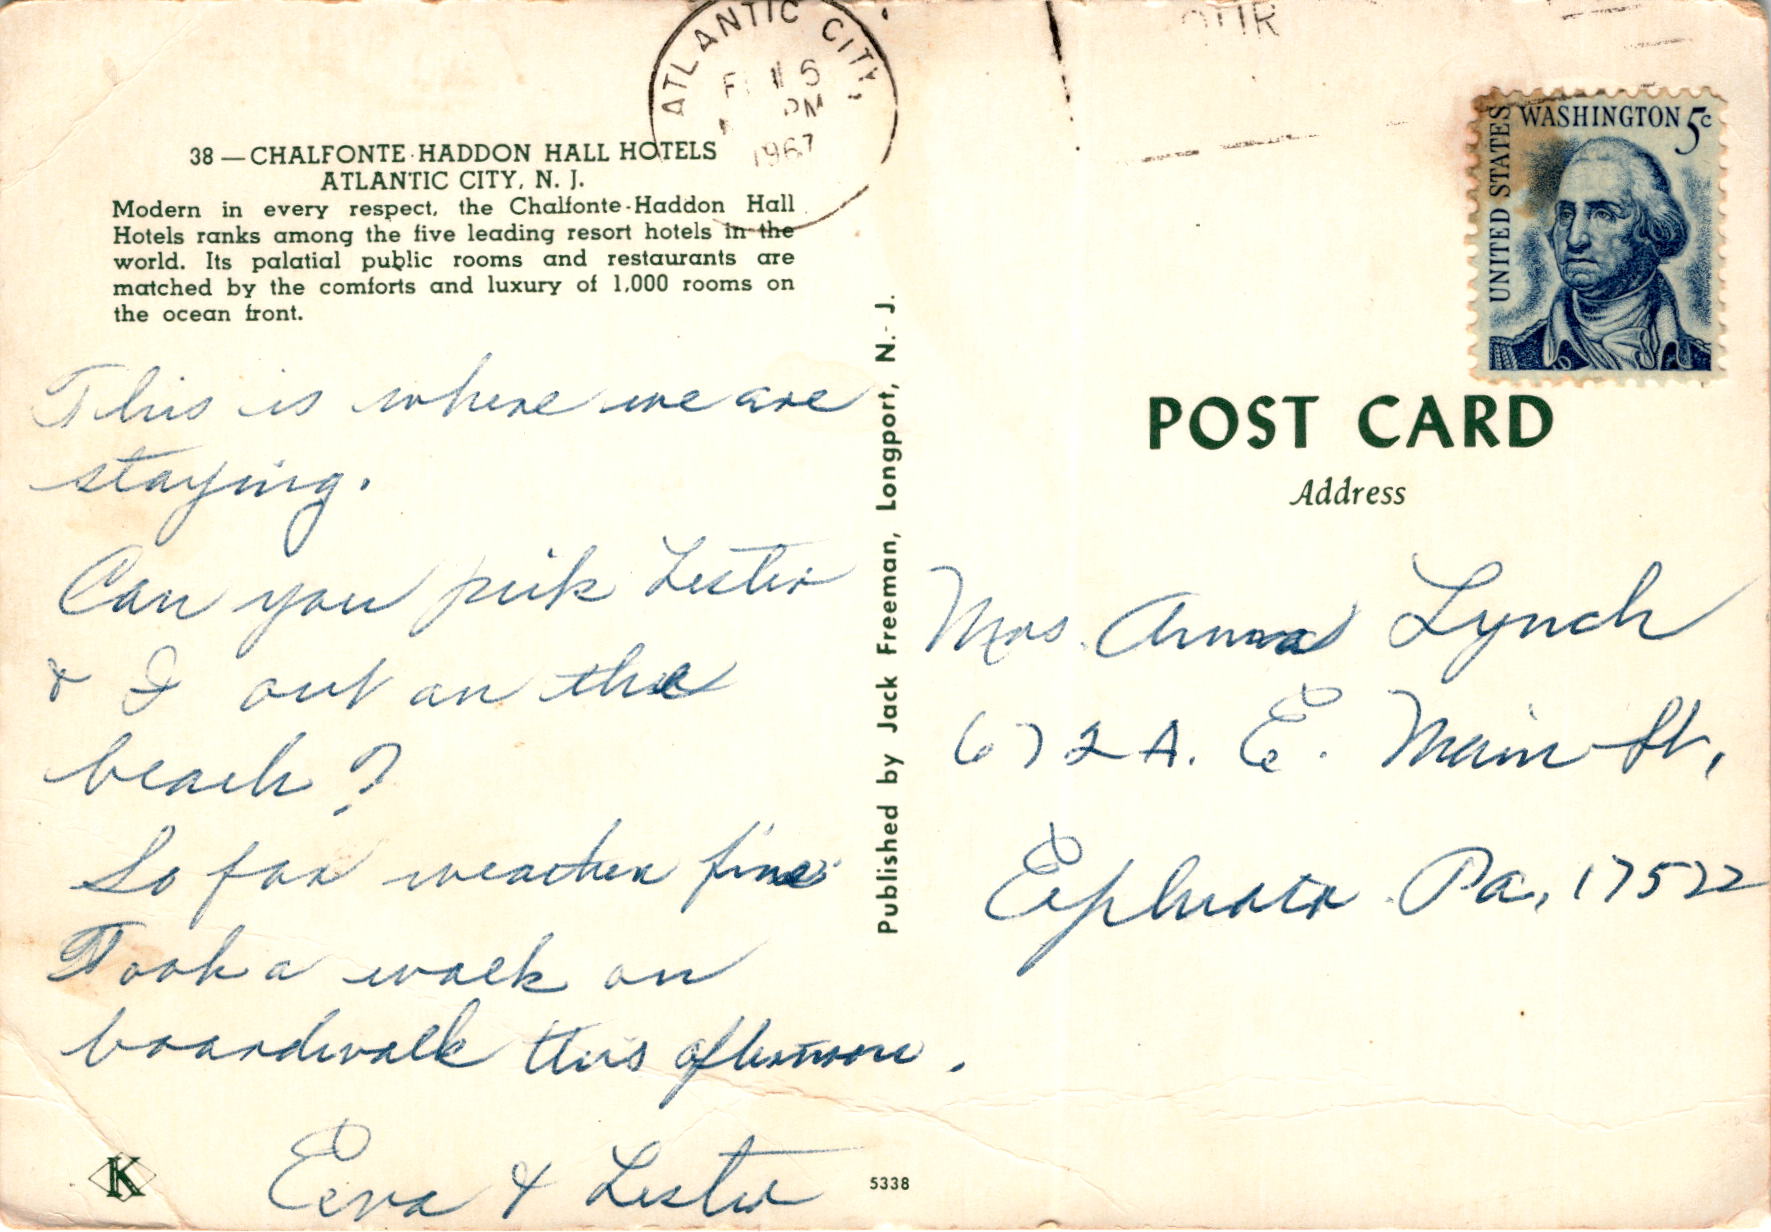 ATLANTIC CITY,
PM
1967
OUR
UNITED STATES
WASHINGTON 5c
38 — CHALFONTE-HADDON HALL HOTELS
ATLANTIC CITY, N. J.
Modern in every respect, the Chalfonte-Haddon Hall
Hotels ranks among the five leading resort hotels in the
world. Its palatial public rooms and restaurants are
matched by the comforts and luxury of 1,000 rooms on
the ocean front.
This is where we are
staying.
Can you pick Lester
& I out on the
beach?
So far weather fine.
Took a walk on
boardwalk this afternoon.
Eva & Lester
K
5338
Published by Jack Freeman, Longport, N. J.
POST CARD
Address
Mrs. Anna Lynch
672 A. E. Main St,
Ephrata Pa, 17522